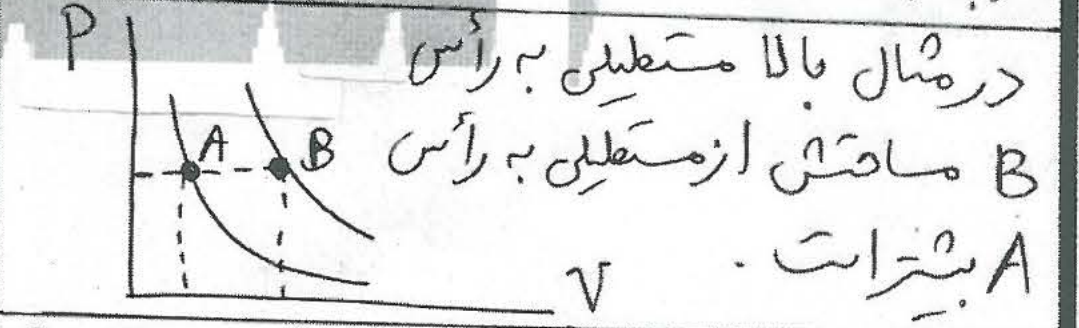 P
در مثال بالا مستطیلی به رأس
A B
B مساحتش از مستطیلی به رأس
A بیشتر است.
V